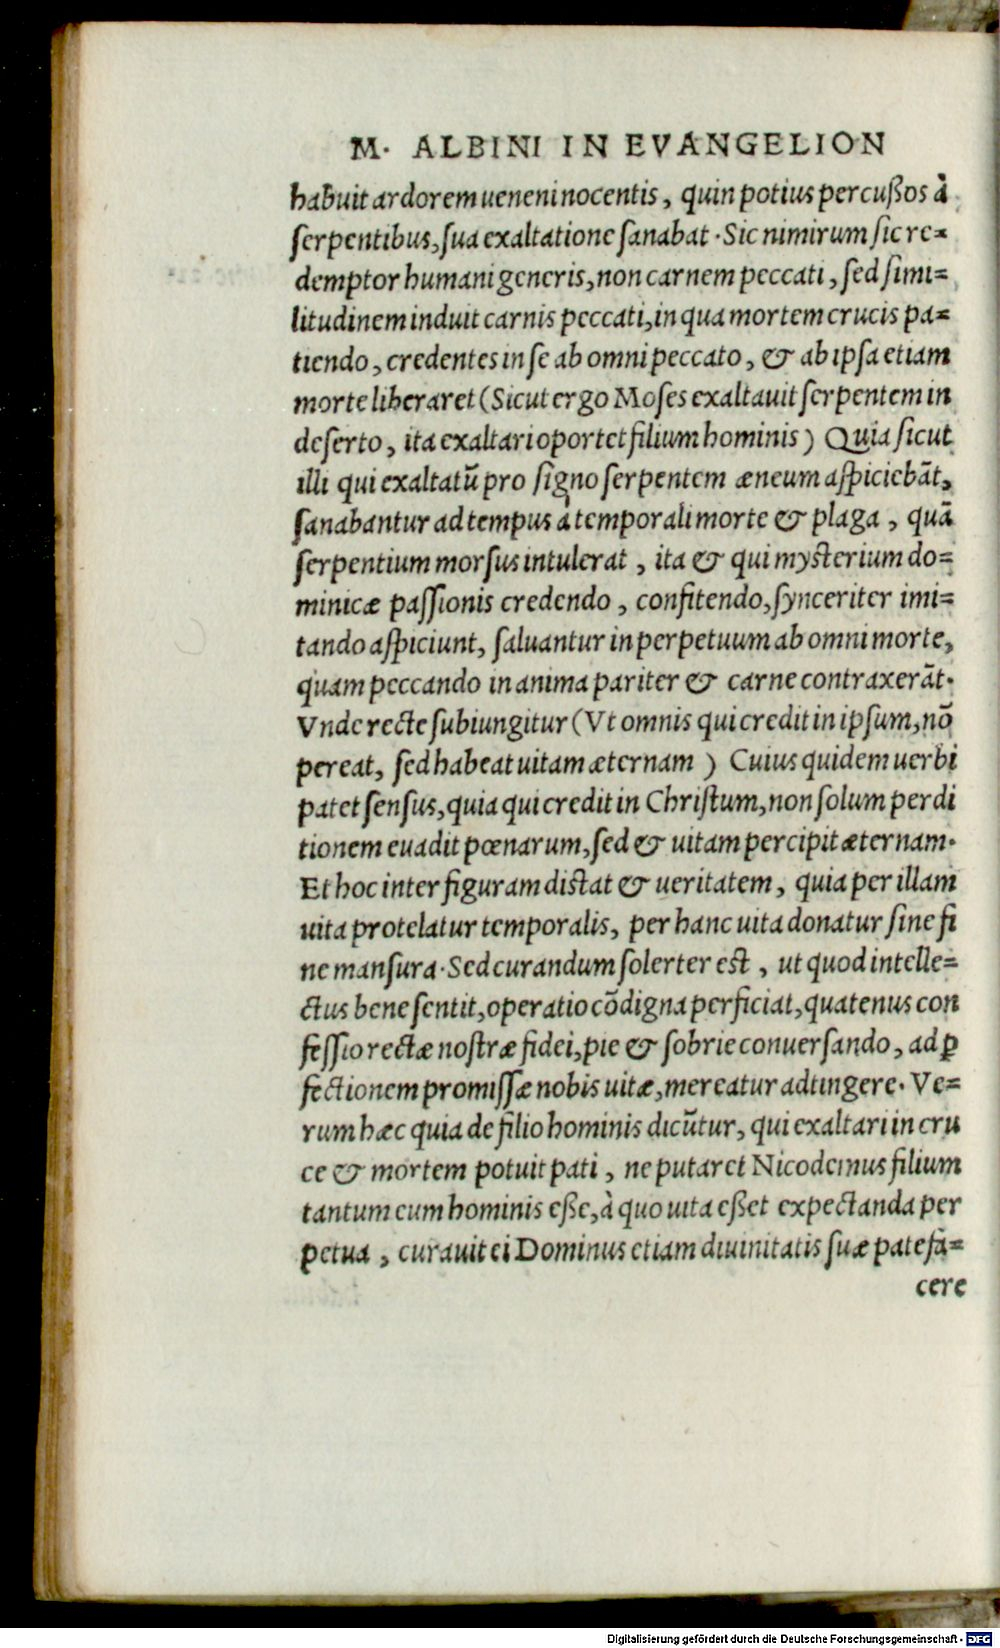 M. ALBINI IN EVANGELION
habuit ardorem ueneni nocentis, quin potius percußos à
serpentibus, sua exaltatione sanabat. Sic nimirum sic re=
demptor humani generis, non carnem peccati, sed simi=
litudinem induit carnis peccati, in qua mortem crucis pa=
tiendo, credentes in se ab omni peccato, & ab ipsa etiam
morte liberaret (Sicut ergo Moses exaltauit serpentem in
deserto, ita exaltari oportet filium hominis) Quia sicut
illi qui exaltatū pro signo serpentem æneum aspiciebāt,
sanabantur ad tempus à temporali morte & plaga, quā
serpentium morsus intulerat, ita & qui mysterium do=
minicæ passionis credendo, confitendo, synceriter imi=
tando aspiciunt, saluantur in perpetuum ab omni morte,
quam peccando in anima pariter & carne contraxerāt.
Vnde recte subiungitur (Vt omnis qui credit in ipsum, nō
pereat, sed habeat uitam æternam) Cuius quidem uerbi
patet sensus, quia qui credit in Christum, non solum perdi
tionem euadit pœnarum, sed & uitam percipit æternam.
Et hoc inter figuram distat & ueritatem, quia per illam
uita protelatur temporalis, per hanc uita donatur sine fi
ne mansura. Sed curandum solerter est, ut quod intelle=
ctus bene sentit, operatio cōdigna perficiat, quatenus con
fessio rectæ nostræ fidei, pie & sobrie conuersando, ad ꝑ
fectionem promissæ nobis uitæ, mereatur adtingere. Ve=
rum hæc quia de filio hominis dicūtur, qui exaltari in cru
ce & mortem potuit pati, ne putaret Nicodemus filium
tantum eum hominis eße, à quo uita eßet expectanda per
petua, curauit ei Dominus etiam diuinitatis suæ patefa=
cere
Digitalisierung gefördert durch die Deutsche Forschungsgemeinschaft - DFG